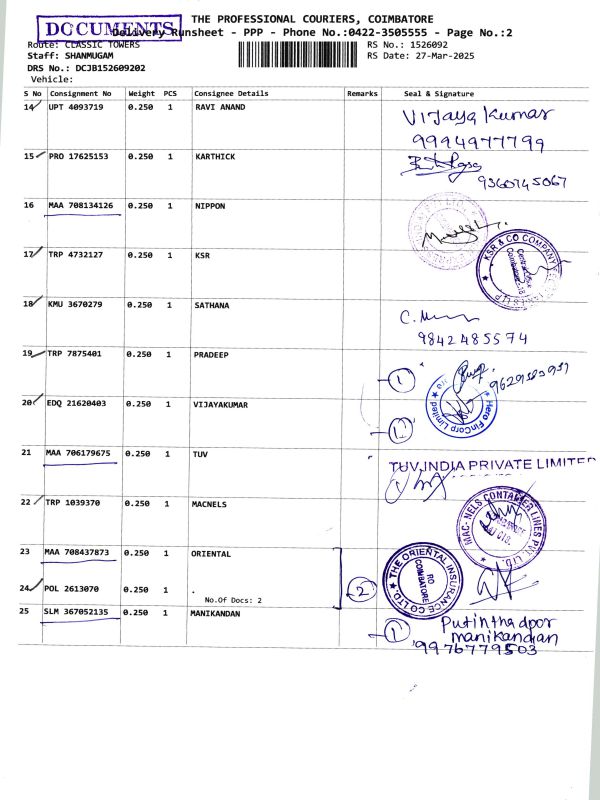 THE PROFESSIONAL COURIERS, COIMBATORE
DOCUMENTS
Delivery Runsheet - PPP - Phone No.:0422-3505555 - Page No.:2
Route: CLASSIC TOWERS
RS No.: 1526092
Staff: SHANMUGAM
RS Date: 27-Mar-2025
DRS No.: DCJB152609202
Vehicle:
S No Consignment No Weight PCS Consignee Details Remarks Seal & Signature
14 UPT 4093719 0.250 1 RAVI ANAND
Vijaya Kumar
9994977799
15 PRO 17625153 0.250 1 KARTHICK
9360745067
16 MAA 708134126 0.250 1 NIPPON
17 TRP 4732127 0.250 1 KSR
KSR & CO COMPANY
18 KMU 3670279 0.250 1 SATHANA
9842485574
19 TRP 7875401 0.250 1 PRADEEP
1
20 EDQ 21620403 0.250 1 VIJAYAKUMAR
Hero FinCorp Limited
1
21 MAA 706179675 0.250 1 TUV
TUV INDIA PRIVATE LIMITED
22 TRP 1039370 0.250 1 MACNELS
MAC-NELS CONTAINER LINES PVT. LTD.
23 MAA 708437873 0.250 1 ORIENTAL
THE ORIENTAL INSURANCE CO LTD.
RO
COIMBATORE
24 POL 2613070 0.250 1 .
No.Of Docs: 2
2
25 SLM 367052135 0.250 1 MANIKANDAN
1
manikandan
9976779503